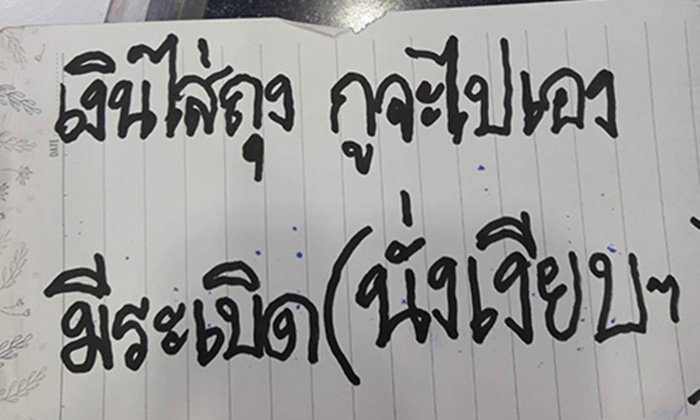 เงินไส่ถุง กูจะไปเอง
มีระเบิด(นั่งเงียบๆ)
DATE